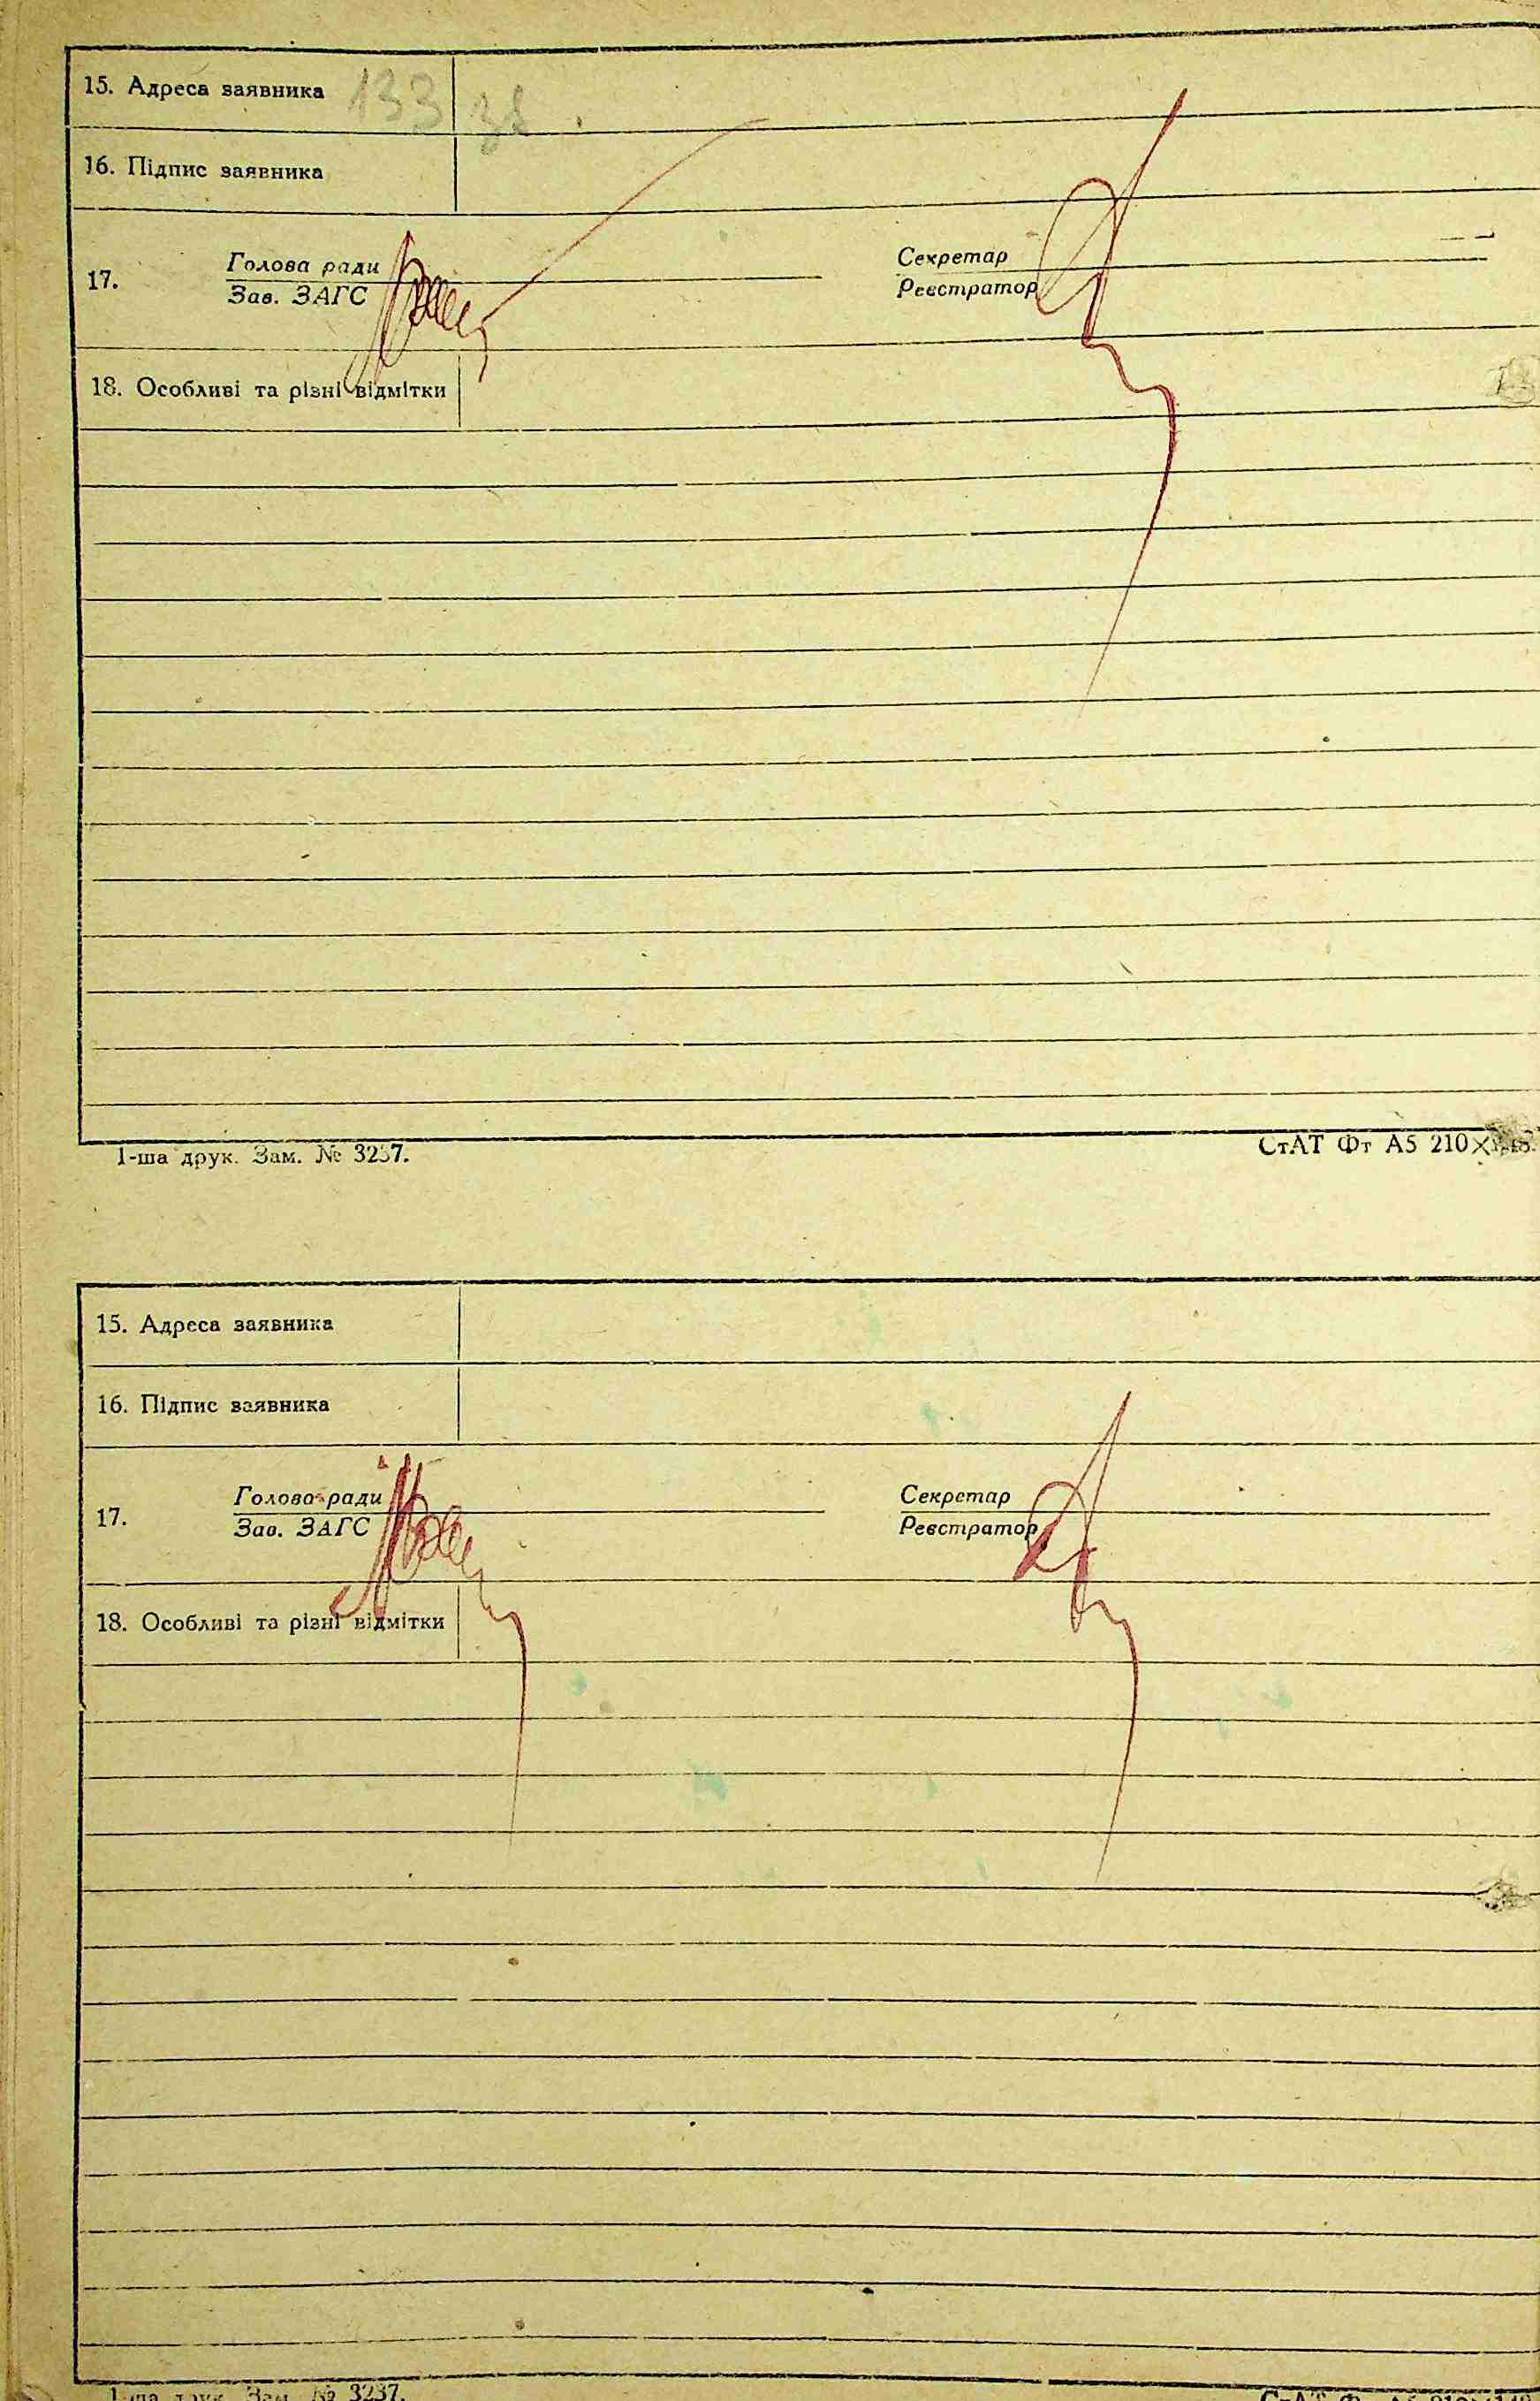 15. Адреса заявника 133 зв.
16. Підпис заявника
17. Голова ради
Зав. ЗАГС
Секретар
Реєстратор
18. Особливі та різні відмітки
1-ша друк. Зам. № 3237.
СтАТ Фт А5 210×148.
15. Адреса заявника
16. Підпис заявника
17. Голова ради
Зав. ЗАГС
Секретар
Реєстратор
18. Особливі та різні відмітки
1-ша друк. Зам. № 3237.